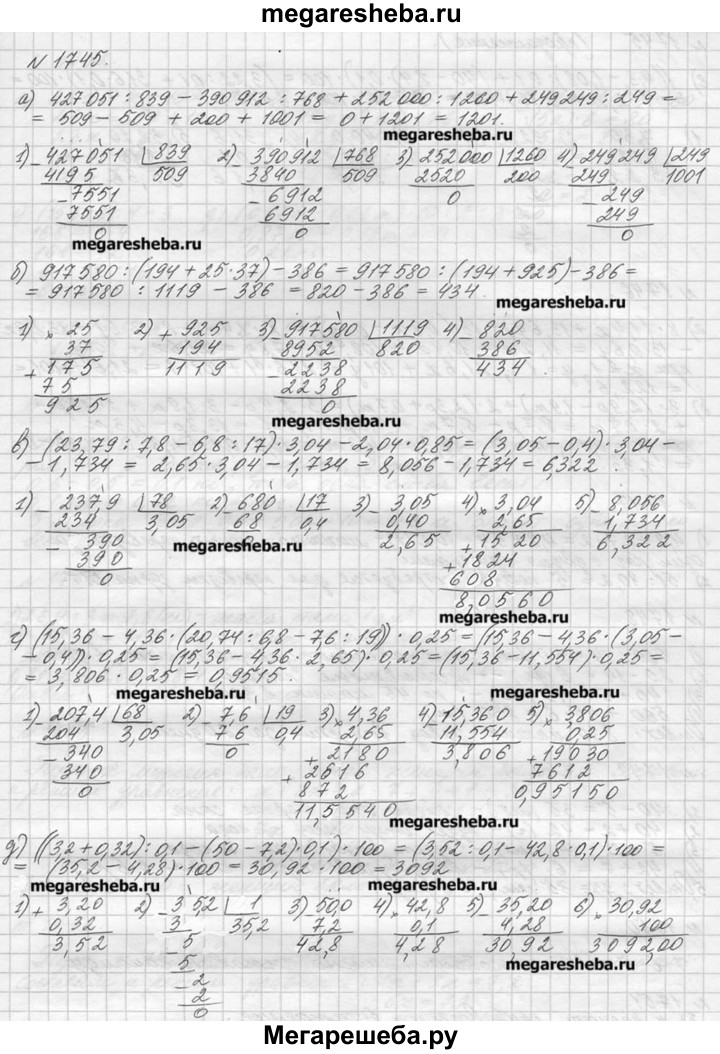 megaresheba.ru
N 1745.
а) 427051 : 839 − 390912 : 768 + 252000 : 1260 + 249249 : 249 =
= 509 − 509 + 200 + 1001 = 0 + 1201 = 1201.
megaresheba.ru
1) − 427051 | 839 2) − 390912 | 768 3) 252000 | 1260 4) 249249 | 249
4195 509 3840 509 2520 200 249 1001
− 7551 − 6912 0 − 249
7551 6912 249
0 0 0
megaresheba.ru
б) 917580 : (194 + 25·37) − 386 = 917580 : (194 + 925) − 386 =
= 917580 : 1119 − 386 = 820 − 386 = 434.
megaresheba.ru
1) × 25 2) + 925 3) − 917580 | 1119 4) − 820
37 194 8952 820 386
+ 175 1119 − 2238 434.
75 2238
925 0
megaresheba.ru
в) (23,79 : 7,8 − 6,8 : 17)·3,04 − 2,04·0,85 = (3,05 − 0,4)·3,04 −
− 1,734 = 2,65·3,04 − 1,734 = 8,056 − 1,734 = 6,322.
1) − 237,9 | 78 2) − 680 | 17 3) − 3,05 4) × 3,04 5) − 8,056
234 3,05 68 0,4 0,40 2,65 1,734
− 390 0 2,65 + 1520 6,322
390 + 1824
0 608
8,0560
megaresheba.ru
megaresheba.ru
г) (15,36 − 4,36·(20,74 : 6,8 − 7,6 : 19))·0,25 = (15,36 − 4,36·(3,05 −
− 0,4))·0,25 = (15,36 − 4,36·2,65)·0,25 = (15,36 − 11,554)·0,25 =
= 3,806·0,25 = 0,9515.
megaresheba.ru
megaresheba.ru
1) − 207,4 | 68 2) − 7,6 | 19 3) × 4,36 4) − 15,360 5) × 3,806
204 3,05 7 6 0,4 2,65 11,554 0,25
− 340 0 + 2180 3,806 + 19030
340 + 2616 7612
0 872 0,95150
11,5540
megaresheba.ru
megaresheba.ru
д) ((3,2 + 0,32) : 0,1 − (50 − 7,2)·0,1)·100 = (3,52 : 0,1 − 42,8·0,1)·100 =
= (35,2 − 4,28)·100 = 30,92·100 = 3092
megaresheba.ru
megaresheba.ru
1) + 3,20 2) − 35,2 | 1 3) 50,0 4) × 42,8 5) − 35,20 6) × 30,92
0,32 3 35,2 7,2 0,1 4,28 100
3,52 − 5 42,8 4,28 30,92 3092,00
5
− 2
2
0
megaresheba.ru
Мегарешеба.ру